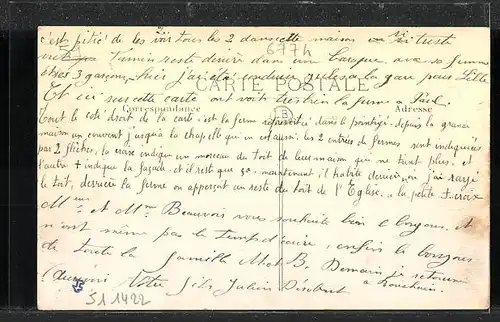 c'est pitié de les voir tous les 2 dans cette maison si triste
Firmin reste derrière dans un baraque, avec sa femme
et ses 3 garçons, puis j'ai été conduire gare pour Lille
6774
CARTE POSTALE
Et ici sur cette carte ont voit très bien la ferme a Paul
Correspondance
Adresse
Tout le côté droit de la carte, c'est la ferme représentée dans le pointigé, depuis la grande
maison au couvent jusqu'à la chapelle qui en est aussi: les 2 entrées de fermes sont indiquées
par 2 flèches, la croix indique un morceau du toit de leur maison qui ne tient plus, et
l'autre + indique la façade, et il reste que ça. maintenant il habite derrière, où j'ai rasé
le toit, derrière la ferme on apperçoit un reste du toit de l'Eglise, a la petite + croix
LB
Mme et Mr Beauvois vous souhaite bien le bonjour, et
n'ont même pas le temps d'écrire, enfin le bonjour
de toute la famille M et B. Demain je retourne
a
Aurevoir Votre fils Julien
S1 1422